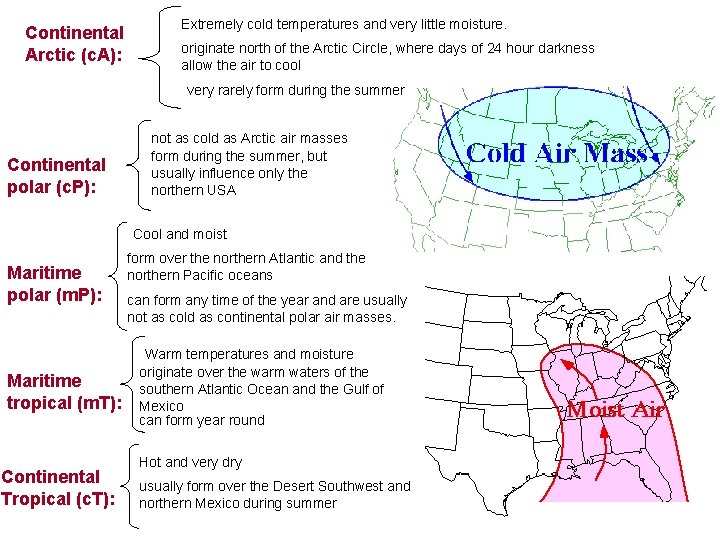 Continental
Arctic (cA):
Extremely cold temperatures and very little moisture.
originate north of the Arctic Circle, where days of 24 hour darkness
allow the air to cool
very rarely form during the summer
Continental
polar (cP):
not as cold as Arctic air masses
form during the summer, but
usually influence only the
northern USA
Cold Air Mass
Maritime
polar (mP):
Cool and moist
form over the northern Atlantic and the
northern Pacific oceans
can form any time of the year and are usually
not as cold as continental polar air masses.
Maritime
tropical (mT):
Warm temperatures and moisture
originate over the warm waters of the
southern Atlantic Ocean and the Gulf of
Mexico
can form year round
Moist Air
Continental
Tropical (cT):
Hot and very dry
usually form over the Desert Southwest and
northern Mexico during summer